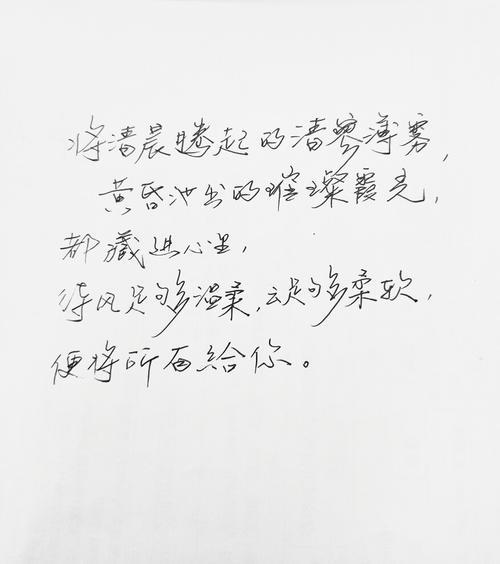 将清晨腾起的清寥薄雾，
黄昏沁出的璀璨霞光，
都藏进心里，
待风足够温柔，云足够柔软，
便将所有给你。